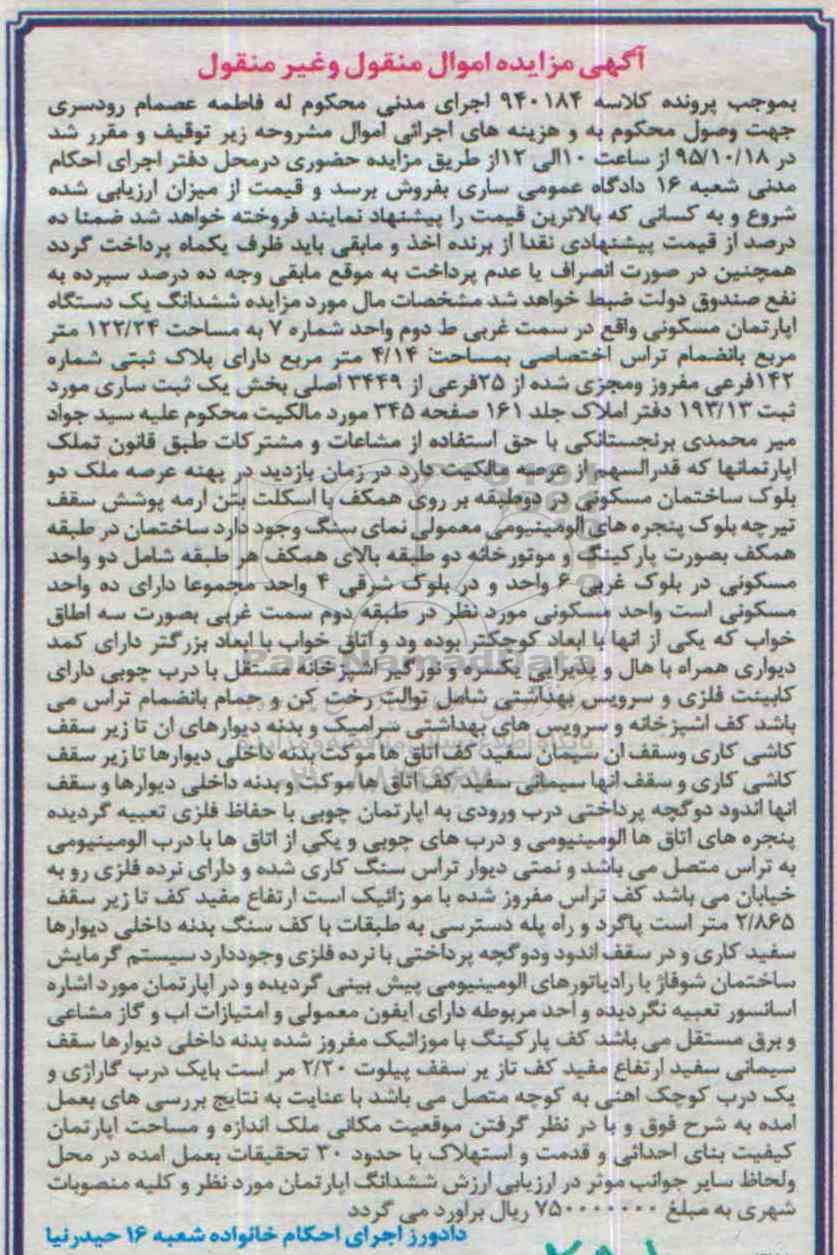 آگهی مزایده اموال منقول وغیر منقول
بموجب پرونده کلاسه ۹۴۰۱۸۴ اجرای مدنی محکوم له فاطمه عصمام رودسری
جهت وصول محکوم به و هزینه های اجرائی اموال مشروحه زیر توقیف و مقرر شد
در ۹۵/۱۰/۱۸ از ساعت ۱۰الی ۱۲از طریق مزایده حضوری درمحل دفتر اجرای احکام
مدنی شعبه ۱۶ دادگاه عمومی ساری بفروش برسد و قیمت از میزان ارزیابی شده
شروع و به کسانی که بالاترین قیمت را پیشنهاد نمایند فروخته خواهد شد ضمنا ده
درصد از قیمت پیشنهادی نقدا از برنده اخذ و مابقی باید ظرف یکماه پرداخت گردد
همچنین در صورت انصراف یا عدم پرداخت به موقع مابقی وجه ده درصد سپرده به
نفع صندوق دولت ضبط خواهد شد مشخصات مال مورد مزایده ششدانگ یک دستگاه
اپارتمان مسکونی واقع در سمت غربی ط دوم واحد شماره ۷ به مساحت ۱۲۲/۲۴ متر
مربع بانضمام تراس اختصاصی بمساحت ۴/۱۴ متر مربع دارای پلاک ثبتی شماره
۱۴۲فرعی مفروز ومجزی شده از ۲۵فرعی از ۳۴۴۹ اصلی بخش یک ثبت ساری مورد
ثبت ۱۹۳/۱۳ دفتر املاک جلد ۱۶۱ صفحه ۳۴۵ مورد مالکیت محکوم علیه سید جواد
میر محمدی برنجستانکی با حق استفاده از مشاعات و مشترکات طبق قانون تملک
اپارتمانها که قدرالسهم از عرصه مالکیت دارد در زمان بازدید در پهنه عرصه ملک دو
بلوک ساختمان مسکونی در دوطبقه بر روی همکف با اسکلت بتن ارمه پوشش سقف
تیرچه بلوک پنجره های الومینیومی معمولی نمای سنگ وجود دارد ساختمان در طبقه
همکف بصورت پارکینگ و موتورخانه دو طبقه بالای همکف هر طبقه شامل دو واحد
مسکونی در بلوک غربی ۶ واحد و در بلوک شرقی ۴ واحد مجموعا دارای ده واحد
مسکونی است واحد مسکونی مورد نظر در طبقه دوم سمت غربی بصورت سه اطاق
خواب که یکی از انها با ابعاد کوچکتر بوده ود و اتاق خواب با ابعاد بزرگتر دارای کمد
دیواری همراه با هال و پذیرایی یکسره و نورگیر اشپزخانه مستقل با درب چوبی دارای
کابینت فلزی و سرویس بهداشتی شامل توالت رخت کن و حمام بانضمام تراس می
باشد کف اشپزخانه و سرویس های بهداشتی سرامیک و بدنه دیوارهای ان تا زیر سقف
کاشی کاری وسقف ان سیمان سفید کف اتاق ها موکت بدنه داخلی دیوارها تا زیر سقف
کاشی کاری و سقف انها سیمانی سفید کف اتاق ها موکت و بدنه داخلی دیوارها و سقف
انها اندود دوگچه پرداختی درب ورودی به اپارتمان چوبی با حفاظ فلزی تعبیه گردیده
پنجره های اتاق ها الومینیومی و درب های چوبی و یکی از اتاق ها با درب الومینیومی
به تراس متصل می باشد و نمتی دیوار تراس سنگ کاری شده و دارای نرده فلزی رو به
خیابان می باشد کف تراس مفروز شده با مو زائیک است ارتفاع مفید کف تا زیر سقف
۲/۸۶۵ متر است پاگرد و راه پله دسترسی به طبقات با کف سنگ بدنه داخلی دیوارها
سفید کاری و در سقف اندود ودوگچه پرداختی با نرده فلزی وجوددارد سیستم گرمایش
ساختمان شوفاژ با رادیاتورهای الومینیومی پیش بینی گردیده و در اپارتمان مورد اشاره
اسانسور تعبیه نگردیده و احد مربوطه دارای ایفون معمولی و امتیازات اب و گاز مشاعی
و برق مستقل می باشد کف پارکینگ با موزائیک مفروز شده بدنه داخلی دیوارها سقف
سیمانی سفید ارتفاع مفید کف تاز یر سقف پیلوت ۲/۲۰ مر است بایک درب گاراژی و
یک درب کوچک اهنی به کوچه متصل می باشد با عنایت به نتایج بررسی های بعمل
امده به شرح فوق و با در نظر گرفتن موقعیت مکانی ملک اندازه و مساحت اپارتمان
کیفیت بنای احداثی و قدمت و استهلاک با حدود ۳۰ تحقیقات بعمل امده در محل
ولحاظ سایر جوانب موثر در ارزیابی ارزش ششدانگ اپارتمان مورد نظر و کلیه منصوبات
شهری به مبلغ ۷۵۰۰۰۰۰۰۰۰ ریال براورد می گردد
دادورز اجرای احکام خانواده شعبه ۱۶ حیدرنیا
ParsNamadData